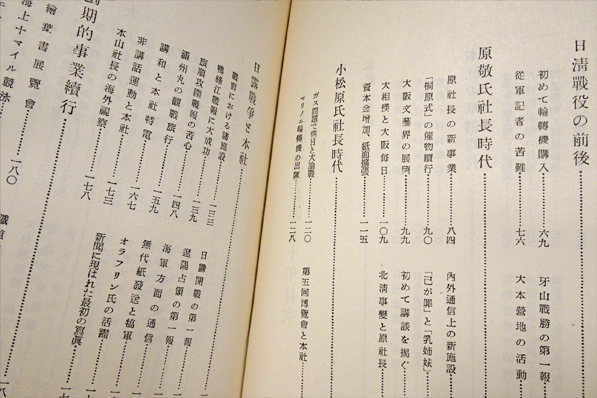 日清戰役の前後
初めて輪轉機購入 六九
牙山戰勝の第一報
從軍記者の苦難 七六
大本營地の活動
原敬氏社長時代
原社長の新事業 八四
内外通信上の新施設
「桐原式」の催物續行 九〇
「己が罪」と「乳姉妹」
大阪文藝界の展開 九九
初めて講談を掲ぐ
大相撲と大阪毎日 一〇九
北淸事變と原社長
資本金增加、紙面擴張 一一五
小松原氏社長時代
ガス問題で朝日と大論戰 一二〇
第五回博覽會と本社
マリノニ輪轉機の出陳 一二八
日露戰爭と本社
戰前における諸施設 一三三
日露開戰の第一報
鴨綠江諜報に大成功
遼陽占領の第一報
旅順攻圍戰報の苦心 一三九
海軍方面の通信
滿州丸の觀戰旅行 一四八
無代紙發送と犒軍
講和と本社特電 一五九
オラフリン氏の活躍
非講話運動と本社 一六七
新聞に現はれた最初の寫眞
本山社長の海外視察 一七三
一七八
期的事業續行
繪葉書展覽會
海上十マイル競泳 一八〇
鐵道